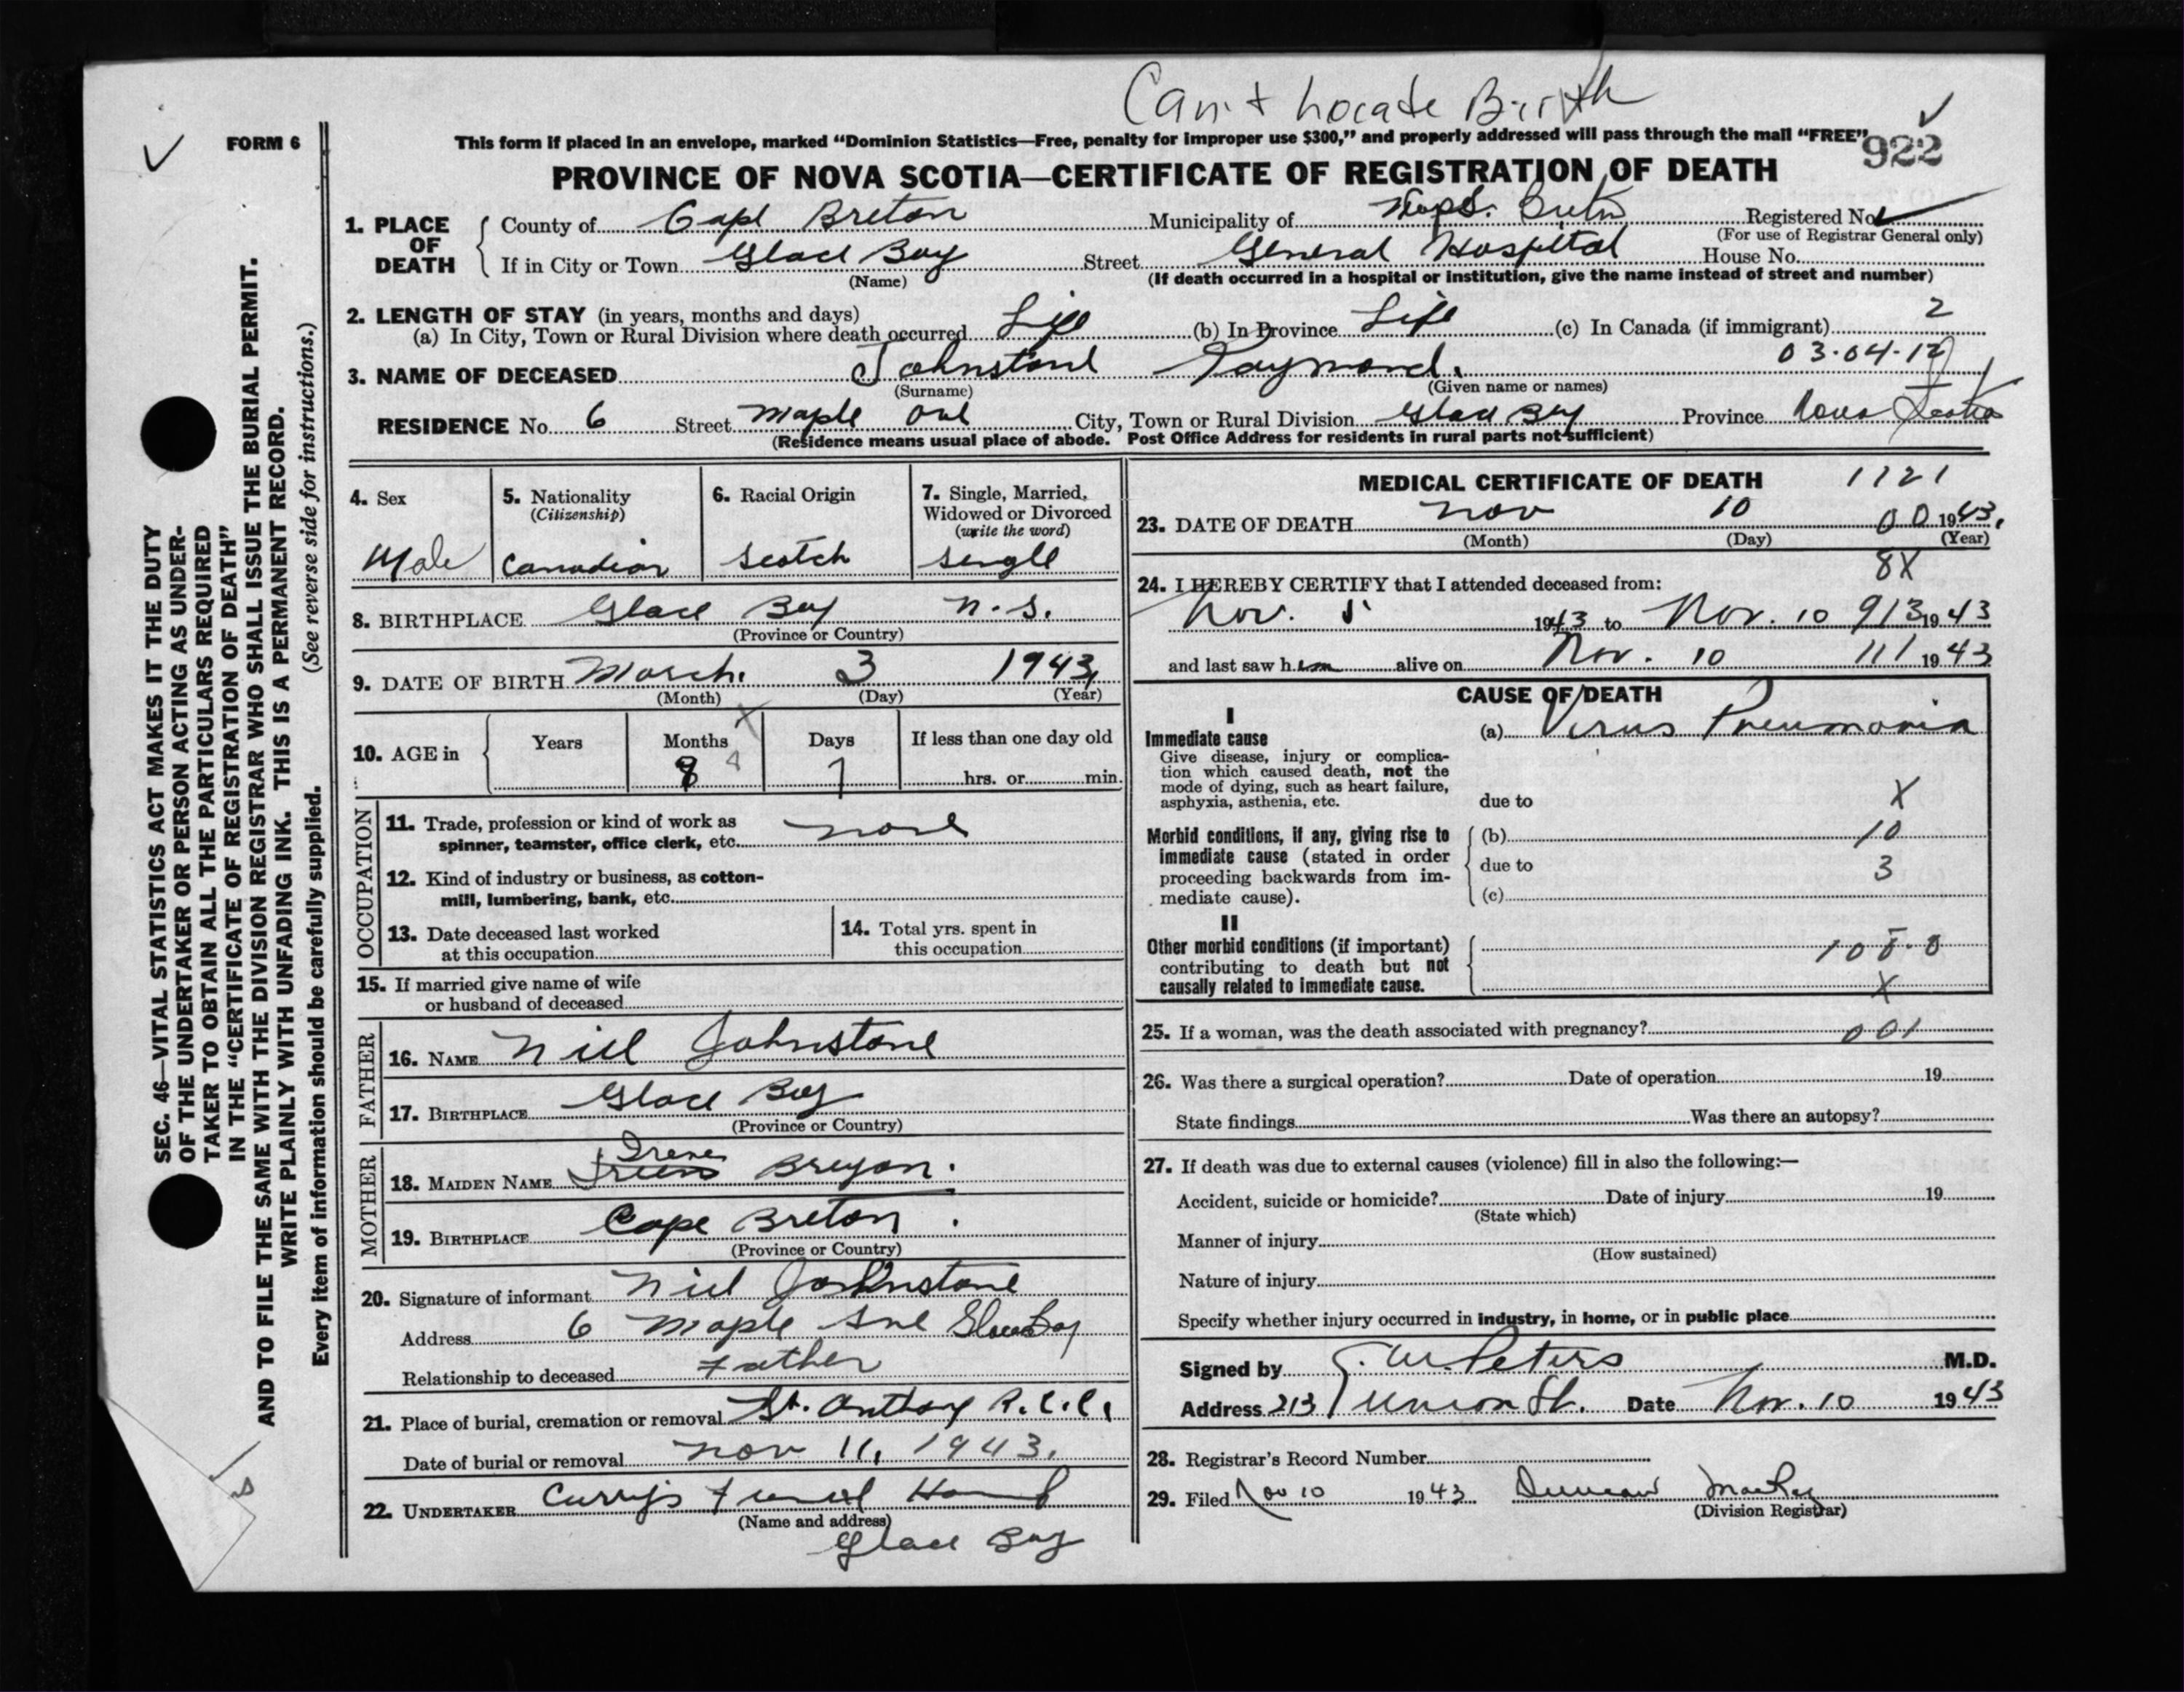 Can't Locate Birth
FORM 6
This form if placed in an envelope, marked “Dominion Statistics—Free, penalty for improper use $300,” and properly addressed will pass through the mail “FREE”
922
PROVINCE OF NOVA SCOTIA—CERTIFICATE OF REGISTRATION OF DEATH
1. PLACE OF DEATH
County of Cape Breton Municipality of Breton Registered No.
(For use of Registrar General only)
If in City or Town Glace Bay Street General Hospital House No.
(Name) (If death occurred in a hospital or institution, give the name instead of street and number)
2. LENGTH OF STAY (in years, months and days) 2
(a) In City, Town or Rural Division where death occurred Life (b) In Province Life (c) In Canada (if immigrant)
03-04-12
3. NAME OF DECEASED Johnstone Raymond.
(Surname) (Given name or names)
RESIDENCE No. 6 Street Maple Ave City, Town or Rural Division Glace Bay Province Nova Scotia
(Residence means usual place of abode. Post Office Address for residents in rural parts not sufficient)
4. Sex
Male
5. Nationality
(Citizenship)
Canadian
6. Racial Origin
Scotch
7. Single, Married,
Widowed or Divorced
(write the word)
Single
8. BIRTHPLACE Glace Bay N.S.
(Province or Country)
9. DATE OF BIRTH March. 3 1943,
(Month) (Day) (Year)
10. AGE in
Years Months Days If less than one day old
8 7 hrs. or min.
OCCUPATION
11. Trade, profession or kind of work as
spinner, teamster, office clerk, etc. none
12. Kind of industry or business, as cotton-
mill, lumbering, bank, etc.
13. Date deceased last worked
at this occupation
14. Total yrs. spent in
this occupation
15. If married give name of wife
or husband of deceased
FATHER
16. NAME Niel Johnstone
17. BIRTHPLACE Glace Bay
(Province or Country)
MOTHER
Irene
18. MAIDEN NAME Bryan.
19. BIRTHPLACE Cape Breton.
(Province or Country)
20. Signature of informant Niel Johnstone
Address 6 Maple Ave Glace Bay
Relationship to deceased Father
21. Place of burial, cremation or removal St. Anthony R.C.C.
Date of burial or removal Nov 11, 1943.
22. UNDERTAKER Curry's Funeral Home
(Name and address)
Glace Bay
MEDICAL CERTIFICATE OF DEATH 1121
23. DATE OF DEATH Nov 10 00 1943,
(Month) (Day) (Year)
8X
24. I HEREBY CERTIFY that I attended deceased from:
Nov. 5 1943 to Nov. 10 913 1943
and last saw him alive on Nov. 10 111 1943
CAUSE OF DEATH
I
Immediate cause
Give disease, injury or complica-
tion which caused death, not the
mode of dying, such as heart failure,
asphyxia, asthenia, etc.
(a) Virus Pneumonia
due to X
Morbid conditions, if any, giving rise to
immediate cause (stated in order
proceeding backwards from im-
mediate cause).
(b) 10
due to 3
(c)
II
Other morbid conditions (if important)
contributing to death but not
causally related to immediate cause.
X
25. If a woman, was the death associated with pregnancy? 001
26. Was there a surgical operation? Date of operation 19
State findings Was there an autopsy?
27. If death was due to external causes (violence) fill in also the following:—
Accident, suicide or homicide? Date of injury 19
(State which)
Manner of injury
(How sustained)
Nature of injury
Specify whether injury occurred in industry, in home, or in public place
Signed by Peters M.D.
Address 213 Union St. Date Nov. 10 1943
28. Registrar's Record Number
29. Filed Nov 10 1943 Duncan
(Division Registrar)
SEC. 46—VITAL STATISTICS ACT MAKES IT THE DUTY
OF THE UNDERTAKER OR PERSON ACTING AS UNDER-
TAKER TO OBTAIN ALL THE PARTICULARS REQUIRED
IN THE “CERTIFICATE OF REGISTRATION OF DEATH”
AND TO FILE THE SAME WITH THE DIVISION REGISTRAR WHO SHALL ISSUE THE BURIAL PERMIT.
WRITE PLAINLY WITH UNFADING INK. THIS IS A PERMANENT RECORD.
Every item of information should be carefully supplied. (See reverse side for instructions.)